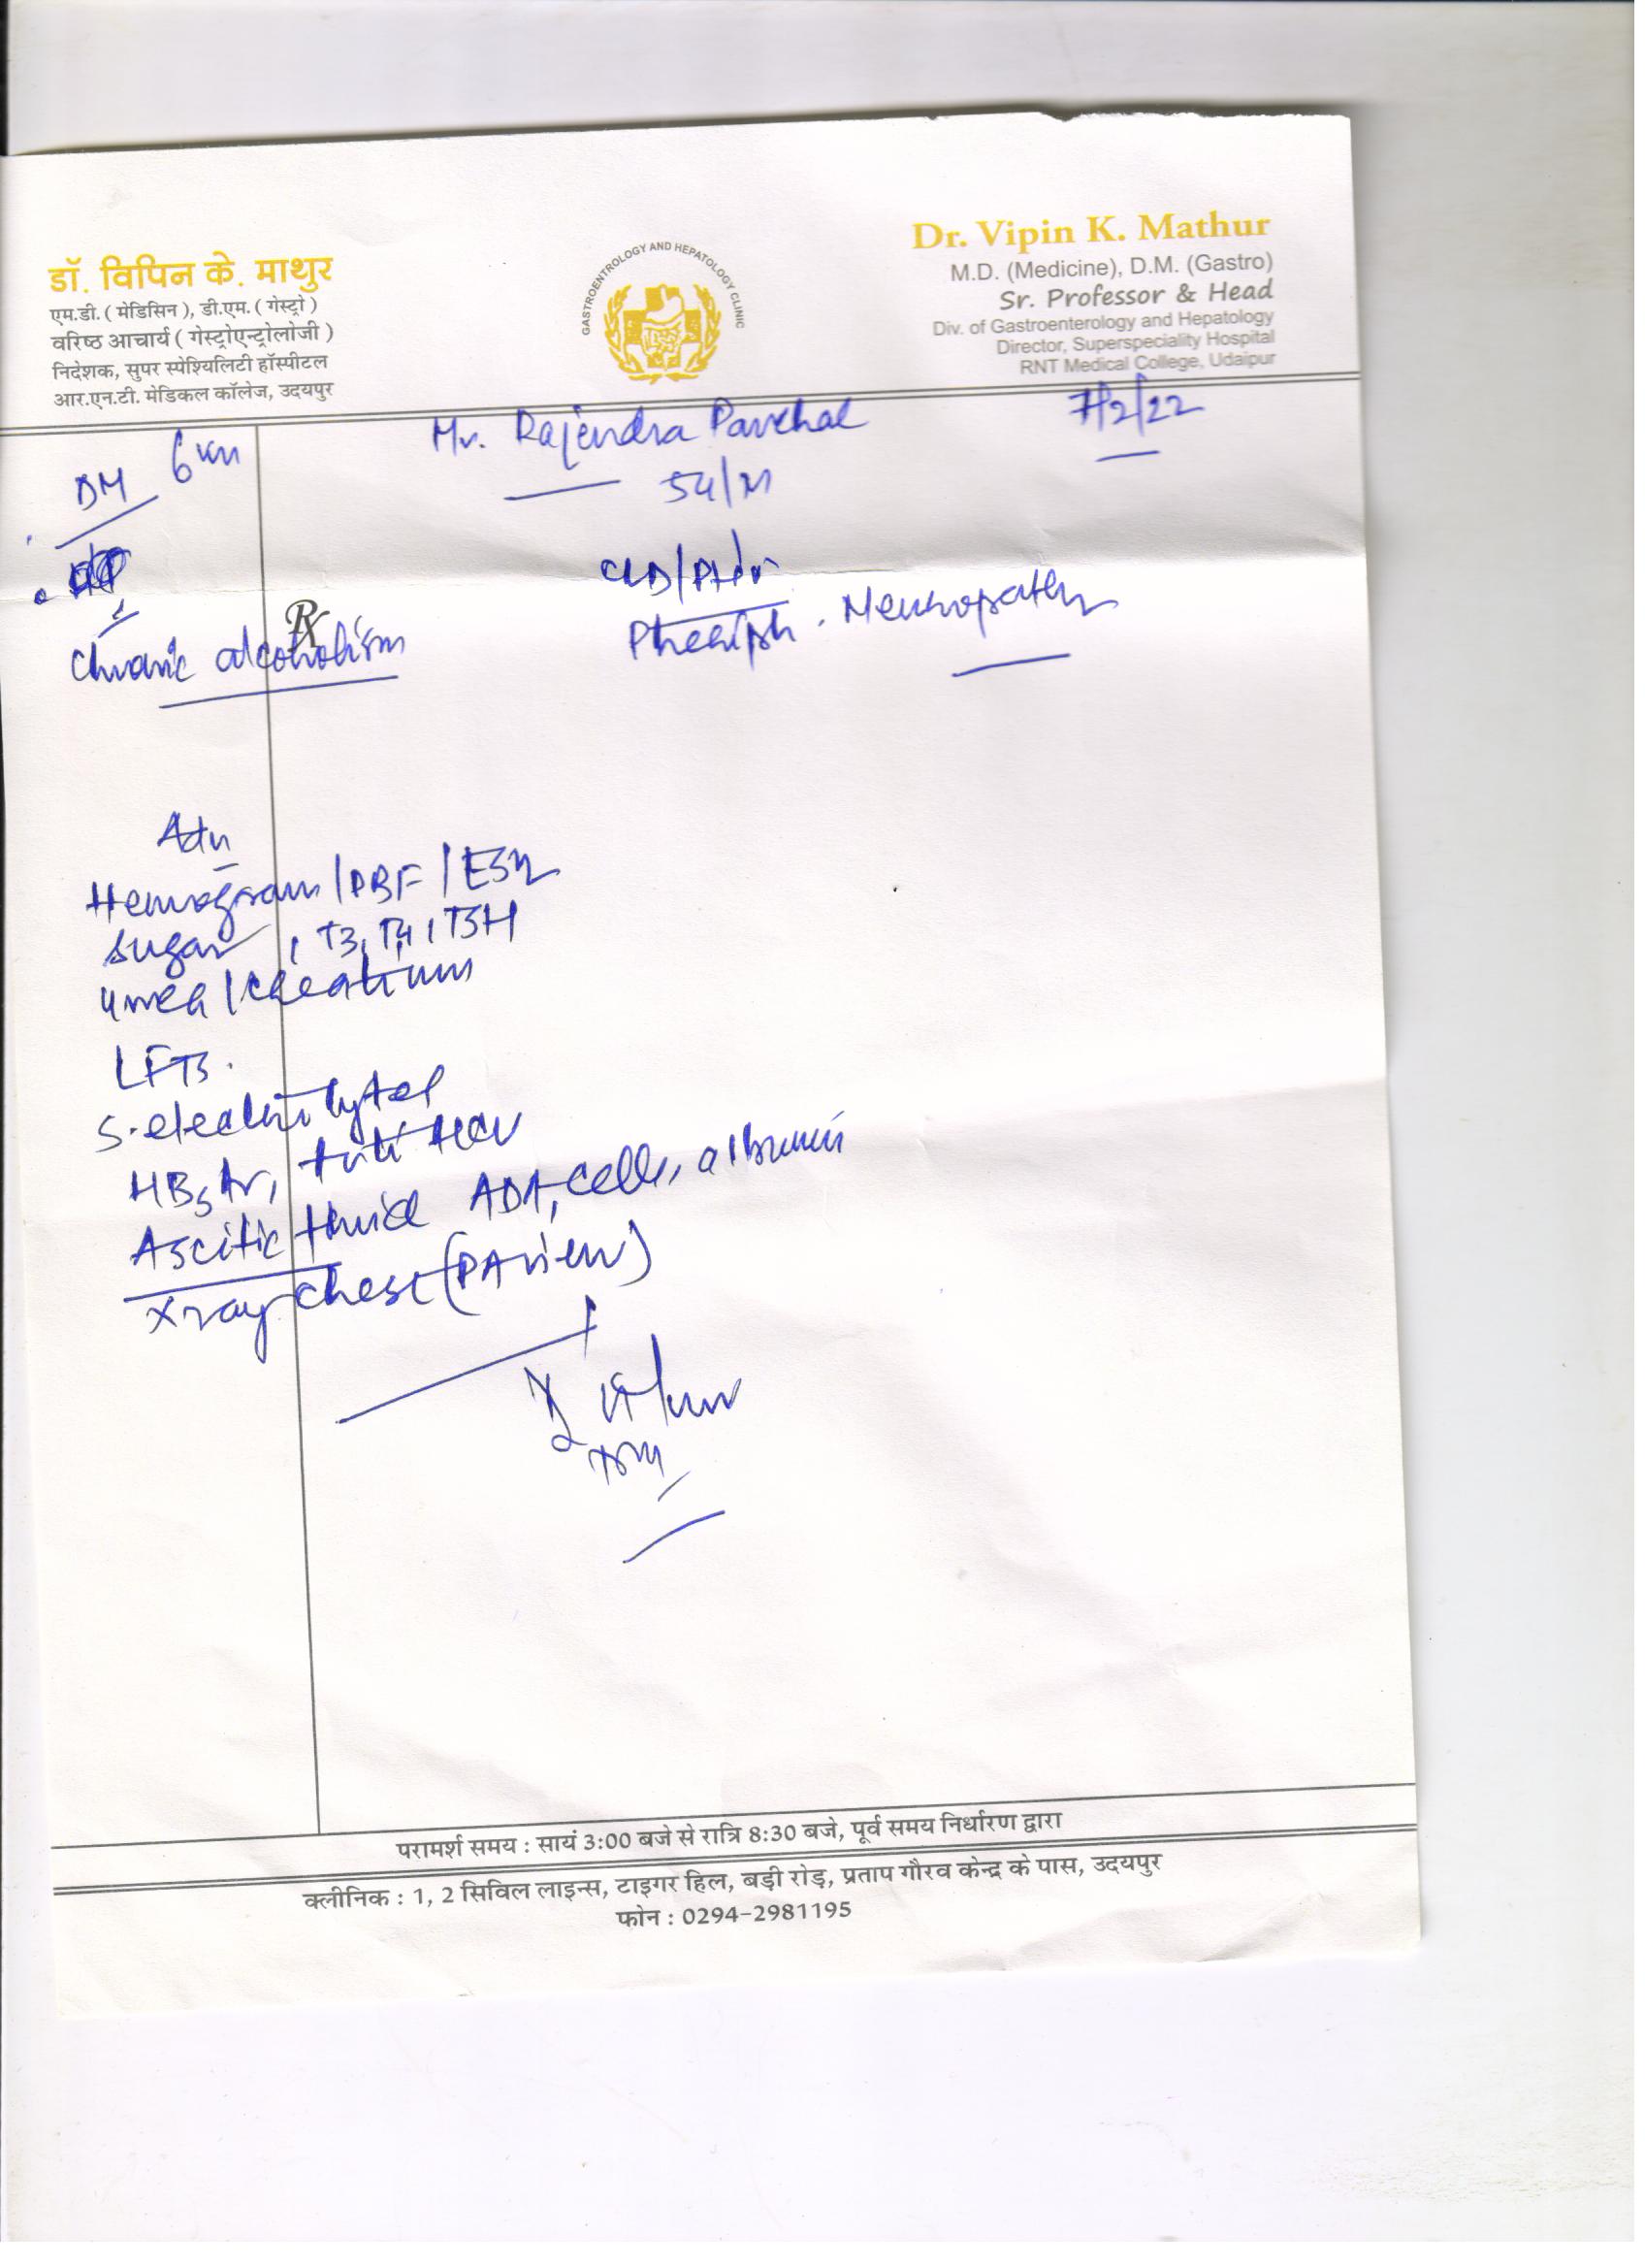 डॉ. विपिन के. माथुर
एम.डी. ( मेडिसिन ), डी.एम. ( गेस्ट्रो )
वरिष्ठ आचार्य ( गेस्ट्रोएन्ट्रोलोजी )
निदेशक, सुपर स्पेश्यिलिटी हॉस्पीटल
आर.एन.टी. मेडिकल कॉलेज, उदयपुर
GASTROENTROLOGY AND HEPATOLOGY CLINIC
Dr. Vipin K. Mathur
M.D. (Medicine), D.M. (Gastro)
Sr. Professor & Head
Div. of Gastroenterology and Hepatology
Director, Superspeciality Hospital
RNT Medical College, Udaipur
Mr. Rajendra Panchal
7/2/22
54/M
DM
CLD/
Neuropathy
Rx
Chronic alcoholism
Adv
Hemogram/PBF/ESR
Sugar, T3, T4, TSH
Urea/Creatinine
LFTs.
S. electrolytes
HBsAg, Anti HCV
Ascitic fluid ADA, cells, albumin
Xray chest (PA view)
परामर्श समय : सायं 3:00 बजे से रात्रि 8:30 बजे, पूर्व समय निर्धारण द्वारा
क्लीनिक : 1, 2 सिविल लाइन्स, टाइगर हिल, बड़ी रोड़, प्रताप गौरव केन्द्र के पास, उदयपुर
फोन : 0294-2981195